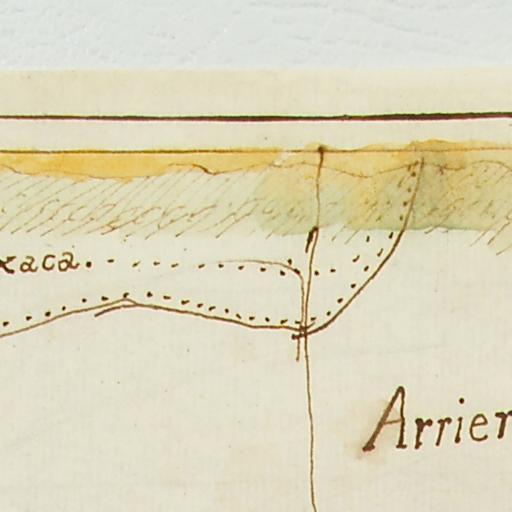 xaca.
Arrier